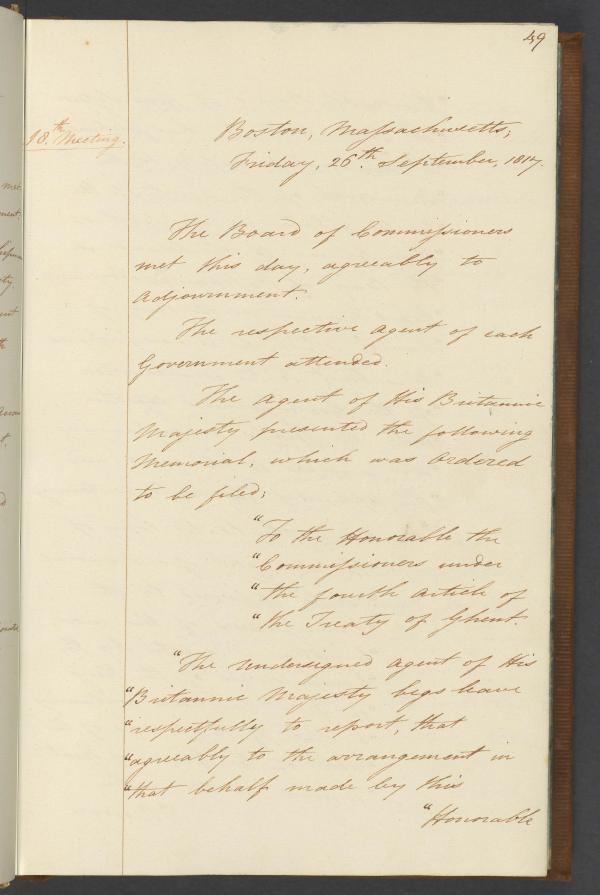 49
18th Meeting.
Boston, Massachusetts;
Friday, 26th September, 1817.
The Board of Commissioners
met this day, agreeably to
Adjournment.
The respective Agent of each
Government attended.
The Agent of His Britannic
Majesty presented the following
Memorial, which was ordered
to be filed;
"To the Honorable the
"Commissioners under
"the fourth Article of
"the Treaty of Ghent.
"The Undersigned Agent of His
"Britannic Majesty begs leave
"respectfully to report, that
"agreeably to the arrangement in
"that behalf made by this
"Honorable